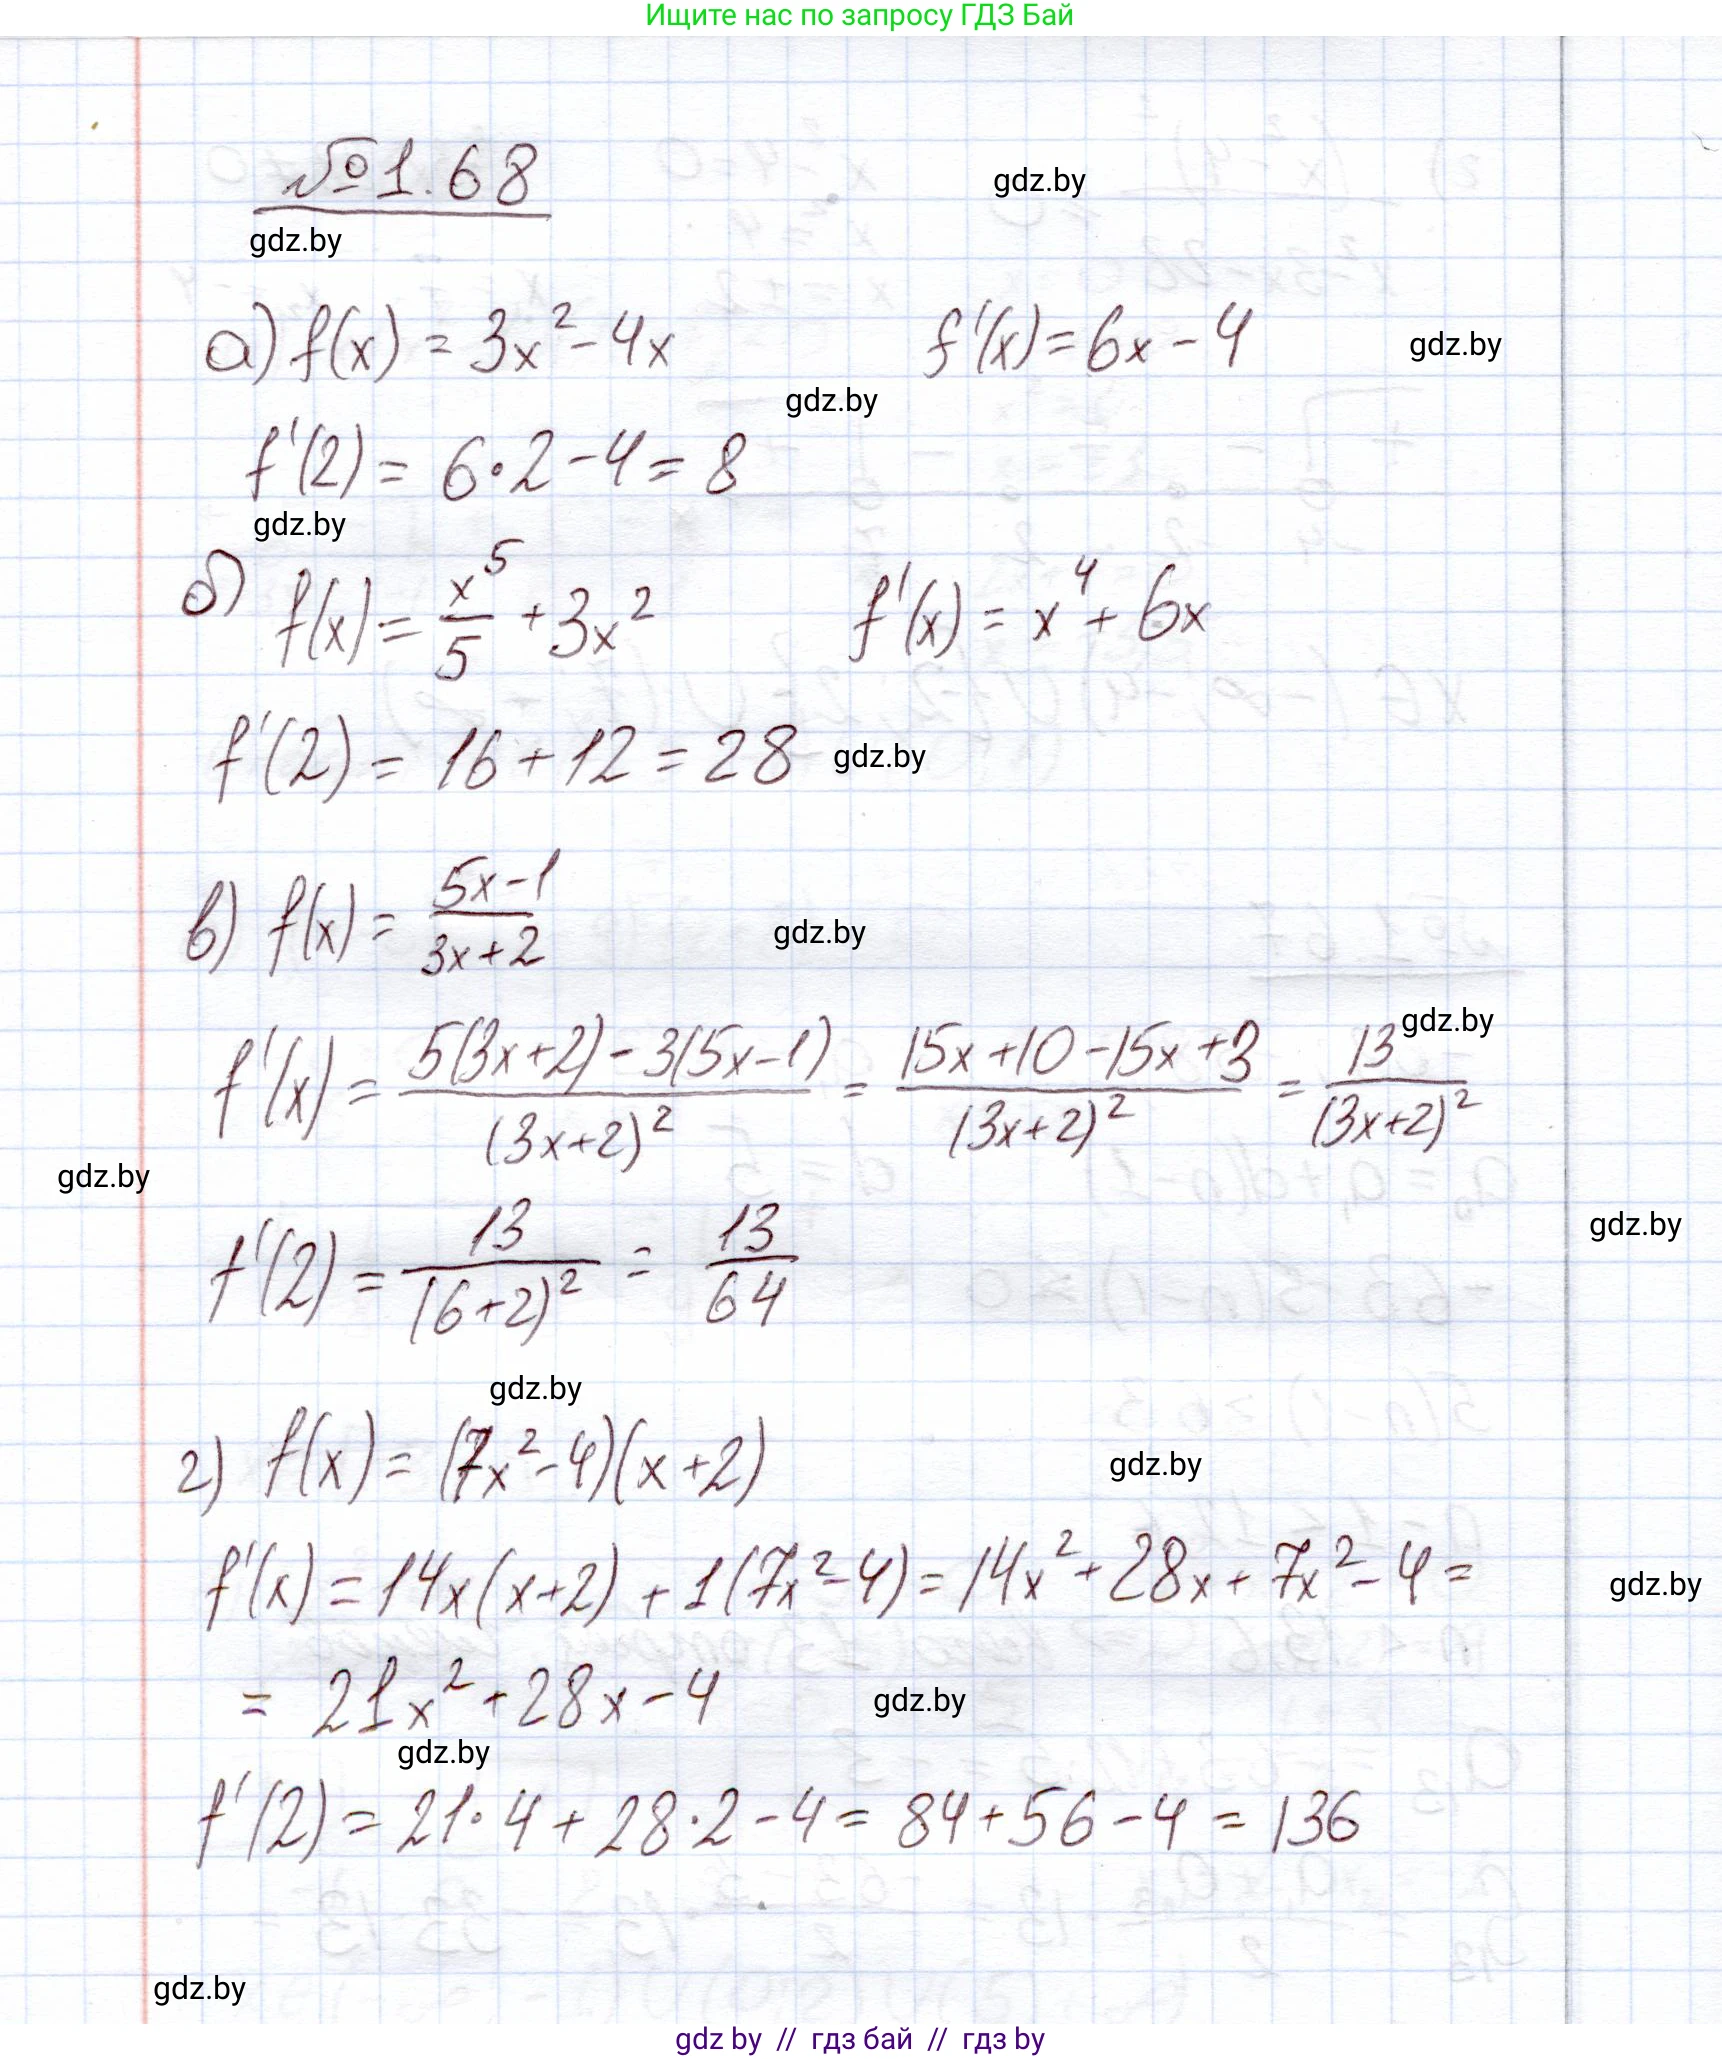 Ищите нас по запросу ГДЗ Бай
№1.68
gdz.by
gdz.by
а) f(x) = 3x² - 4x    f'(x) = 6x - 4
gdz.by
gdz.by
f'(2) = 6·2 - 4 = 8
gdz.by
б) f(x) = x⁵/5 + 3x²    f'(x) = x⁴ + 6x
f'(2) = 16 + 12 = 28
gdz.by
в) f(x) = (5x-1)/(3x+2)
gdz.by
gdz.by
f'(x) = (5(3x+2) - 3(5x-1))/(3x+2)² = (15x+10-15x+3)/(3x+2)² = 13/(3x+2)²
gdz.by
gdz.by
f'(2) = 13/(6+2)² = 13/64
gdz.by
г) f(x) = (7x²-4)(x+2)
gdz.by
f'(x) = 14x(x+2) + 1(7x²-4) = 14x² + 28x + 7x² - 4 =
gdz.by
= 21x² + 28x - 4
gdz.by
gdz.by
f'(2) = 21·4 + 28·2 - 4 = 84 + 56 - 4 = 136
gdz.by
gdz by // гдз бай // гдз by